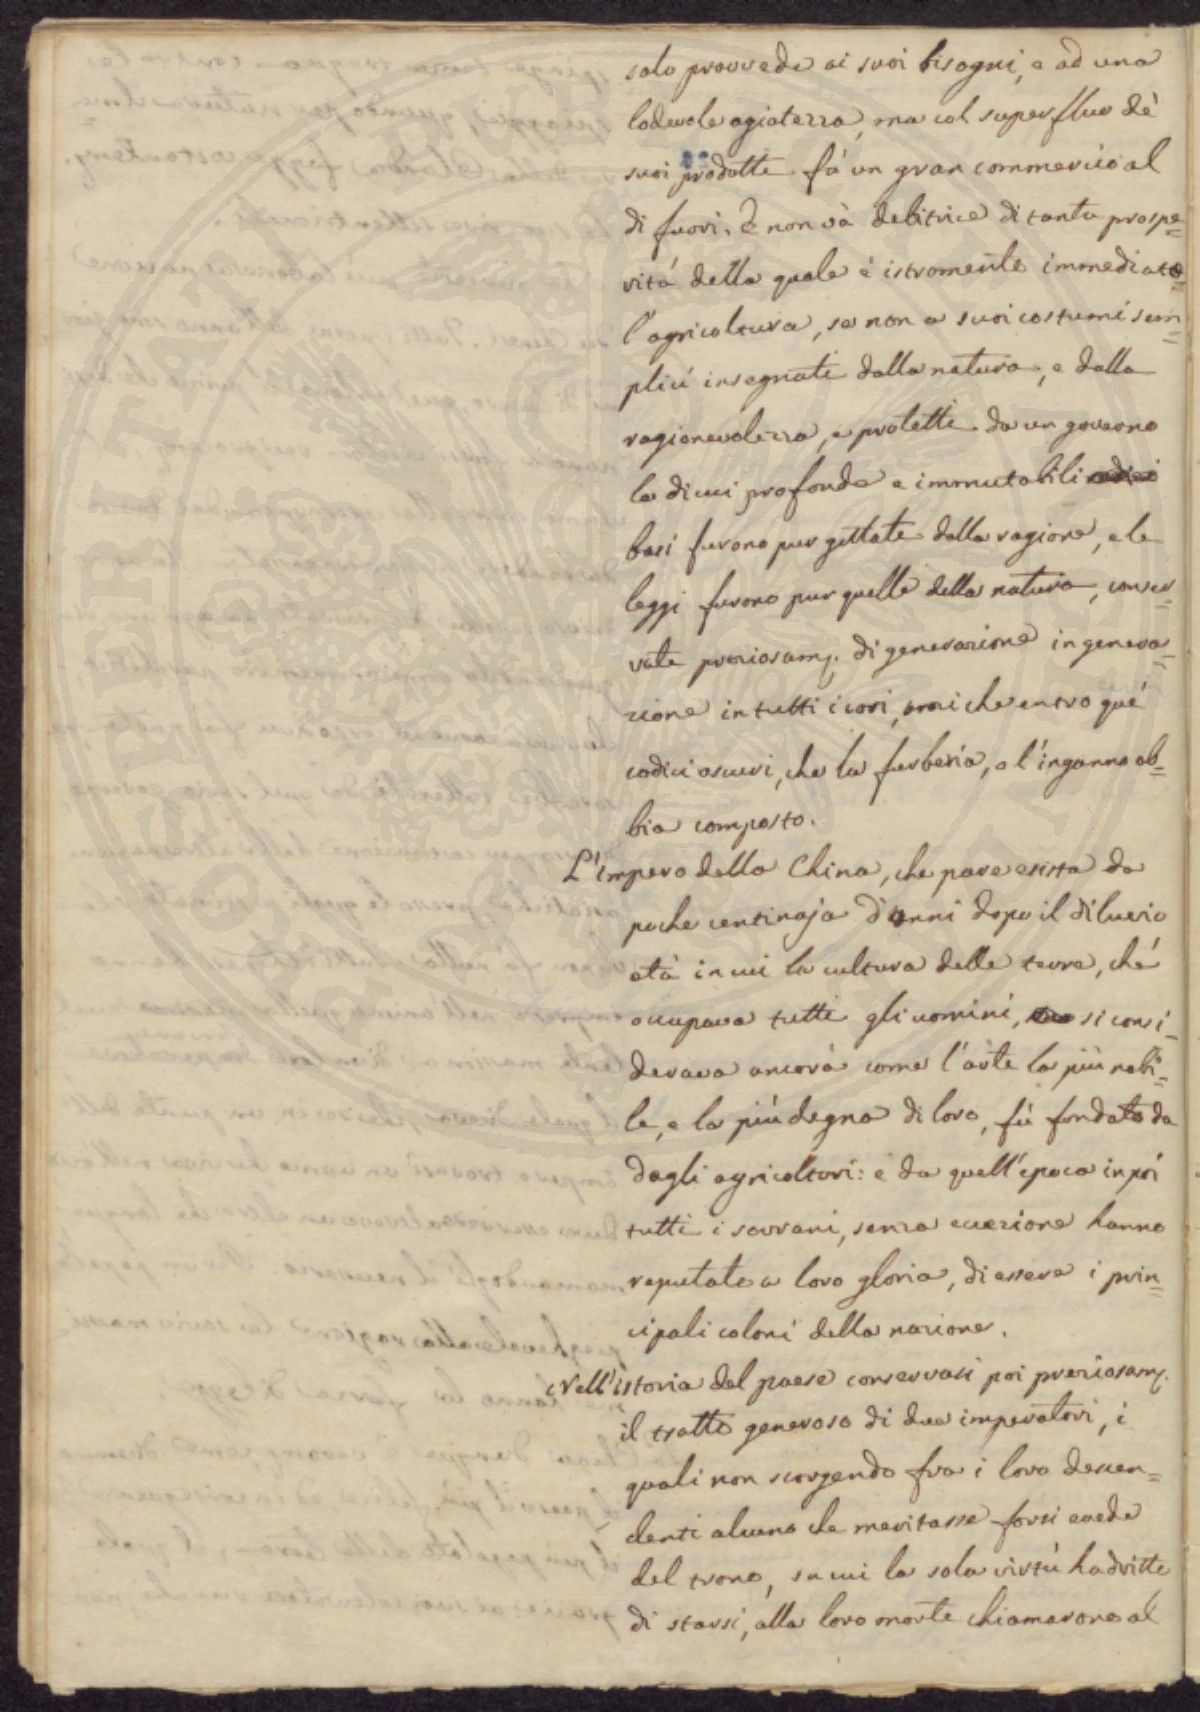 solo provvede ai suoi bisogni, e ad una
lodevole agiatezza, ma col superfluo dè
suoi prodotti fà un gran commercio al
di fuori. E non và debitrice di tanta prospe=
rità della quale è istromente immediato
l'agricoltura, se non a suoi costumi sem=
plici insegnati dalla natura, e dalla
ragionevolezza, e protetti da un governo
la di cui profonde e immutabili
basi furono pur gettate dalla ragione, e le
leggi furono pur quelle della natura, conser=
vate preziosam. di generazione in genera=
zione in tutti i cori, anziche entro què
codici oscuri, che la furberia, e l'inganno ab=
bia composto.
L'impero della China, che pare esista da
poche centinaja d'anni dopo il diluvio
età in cui la cultura delle terre, chè
occupava tutti gli uomini, si consi=
derava ancorà come l'arte la più nobi=
le, e la più degna di loro, fù fondato da
dagli agricoltori: e da quell'epoca in poi
tutti i sovrani, senza eccezione hanno
reputato a loro gloria, di essere i prin=
cipali coloni della nazione.
Nell'istoria del paese conservasi poi preziosam.
il tratto generoso di due imperatori, i
quali non scorgendo fra i loro descen=
denti alcuno che meritasse farsi erede
del trono, su cui la sola virtù ha dritto
di starsi, alla loro morte chiamarono al